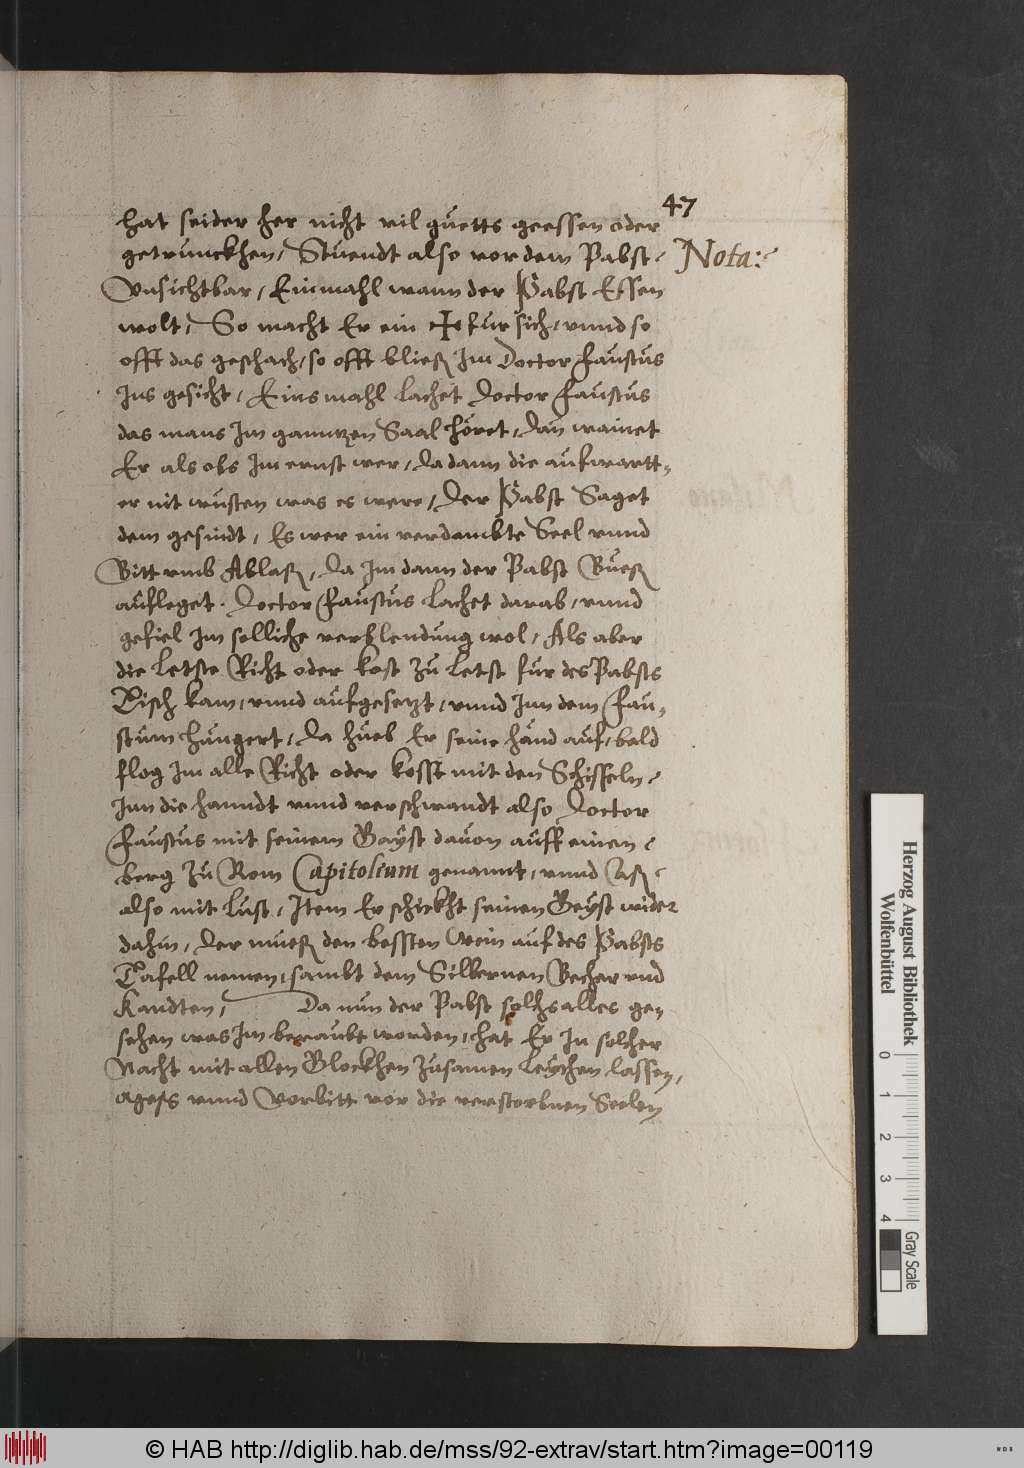 47
hat seider her nicht vil guetts geessen oder
getrunckhen, Stuendt also vor dem Pabst
Nota:
Vnsichtbar, Einmahl wann der Pabst Essen
wolt, So macht Er ein ✠ fur sich, vnnd so
offt das geschach, so offt bließ Im Doctor Faustus
Ins gesicht, Eins mahl lachet Doctor Faustus
das mans Im ganntzen Saal höret, dan wainet
Er als obs Im ernst wer, da dann die aufwartt-
er nit wusten was es were, der Pabst Saget
dem gesindt, Es wer ein verdambte Seel vnnd
Bitt vmb Ablaß, da Im dann der Pabst Bueß
aufleget. Doctor Faustus lachet darab, vnnd
gefiel Im solliche verblendung wol, Als aber
die letste Richt oder kost zu letst fur des Pabsts
Disch kam, vnnd aufgesetzt, vnnd Inn dem Fau-
stum hungert, da hueb Er seine hand auf, bald
flog Im alle Richt oder kosst mit den Schisseln
Inn die hanndt vnnd verschwandt also Doctor
Faustus mit seinem Gayst dauon auff einen
berg zu Rom Capitolium genannt, vnnd Aß
also mit lust, Item Er schickht seinen Geyst wider
dahin, der mueß den bessten Wein auf des Pabsts
Tafell nemen, sambt dem Silbernen Becher vnd
Kandten, Da nun der Pabst solchs alles ge-
sehen was Im beraubt worden, hat Er In solcher
Nacht mit allen Glockhen zusamen leythen lassen,
vnnd Vorbitt vor die verstorbnen Seelen
Herzog August Bibliothek
Wolfenbüttel
0 1 2 3 4
Gray Scale
© HAB http://diglib.hab.de/mss/92-extrav/start.htm?image=00119
WDB